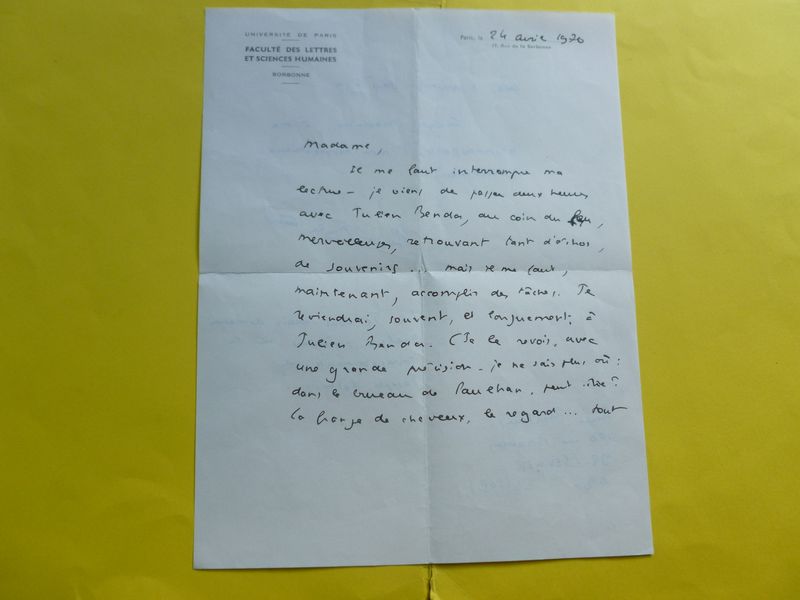 UNIVERSITÉ DE PARIS
FACULTÉ DES LETTRES
ET SCIENCES HUMAINES
SORBONNE
Paris, le 24 avril 1970
17, Rue de la Sorbonne
Madame,
Il me faut interrompre ma
lecture - je viens de passer deux heures
avec Julien Benda, au coin du feu,
merveilleuses, retrouvant tant d'échos,
de souvenirs... mais il me faut,
maintenant, accomplir des tâches. Je
reviendrai, souvent, et longuement, à
Julien Benda. (Je le revois, avec
une grande précision - je ne sais plus où :
dans le bureau de Paulhan, peut-être ?
la frange de cheveux, le regard... tout